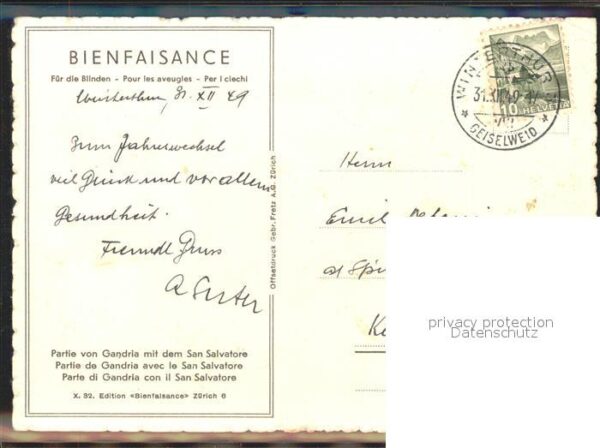 BIENFAISANCE
Für die Blinden - Pour les aveugles - Per i ciechi
Winterthur, 31. XII 49
Zum Jahreswechsel
viel Glück und vor allem
Gesundheit.
Freundl Gruss
A Suter
Partie von Gandria mit dem San Salvatore
Partie de Gandria avec le San Salvatore
Parte di Gandria con il San Salvatore
X. 82. Edition «Bienfaisance» Zürich 6
Offsetdruck Gebr. Fretz A.G. Zürich
WINTERTHUR
31.XII.49
GEISELWEID
10 HELVETIA
Herrn
Emil
privacy protection
Datenschutz